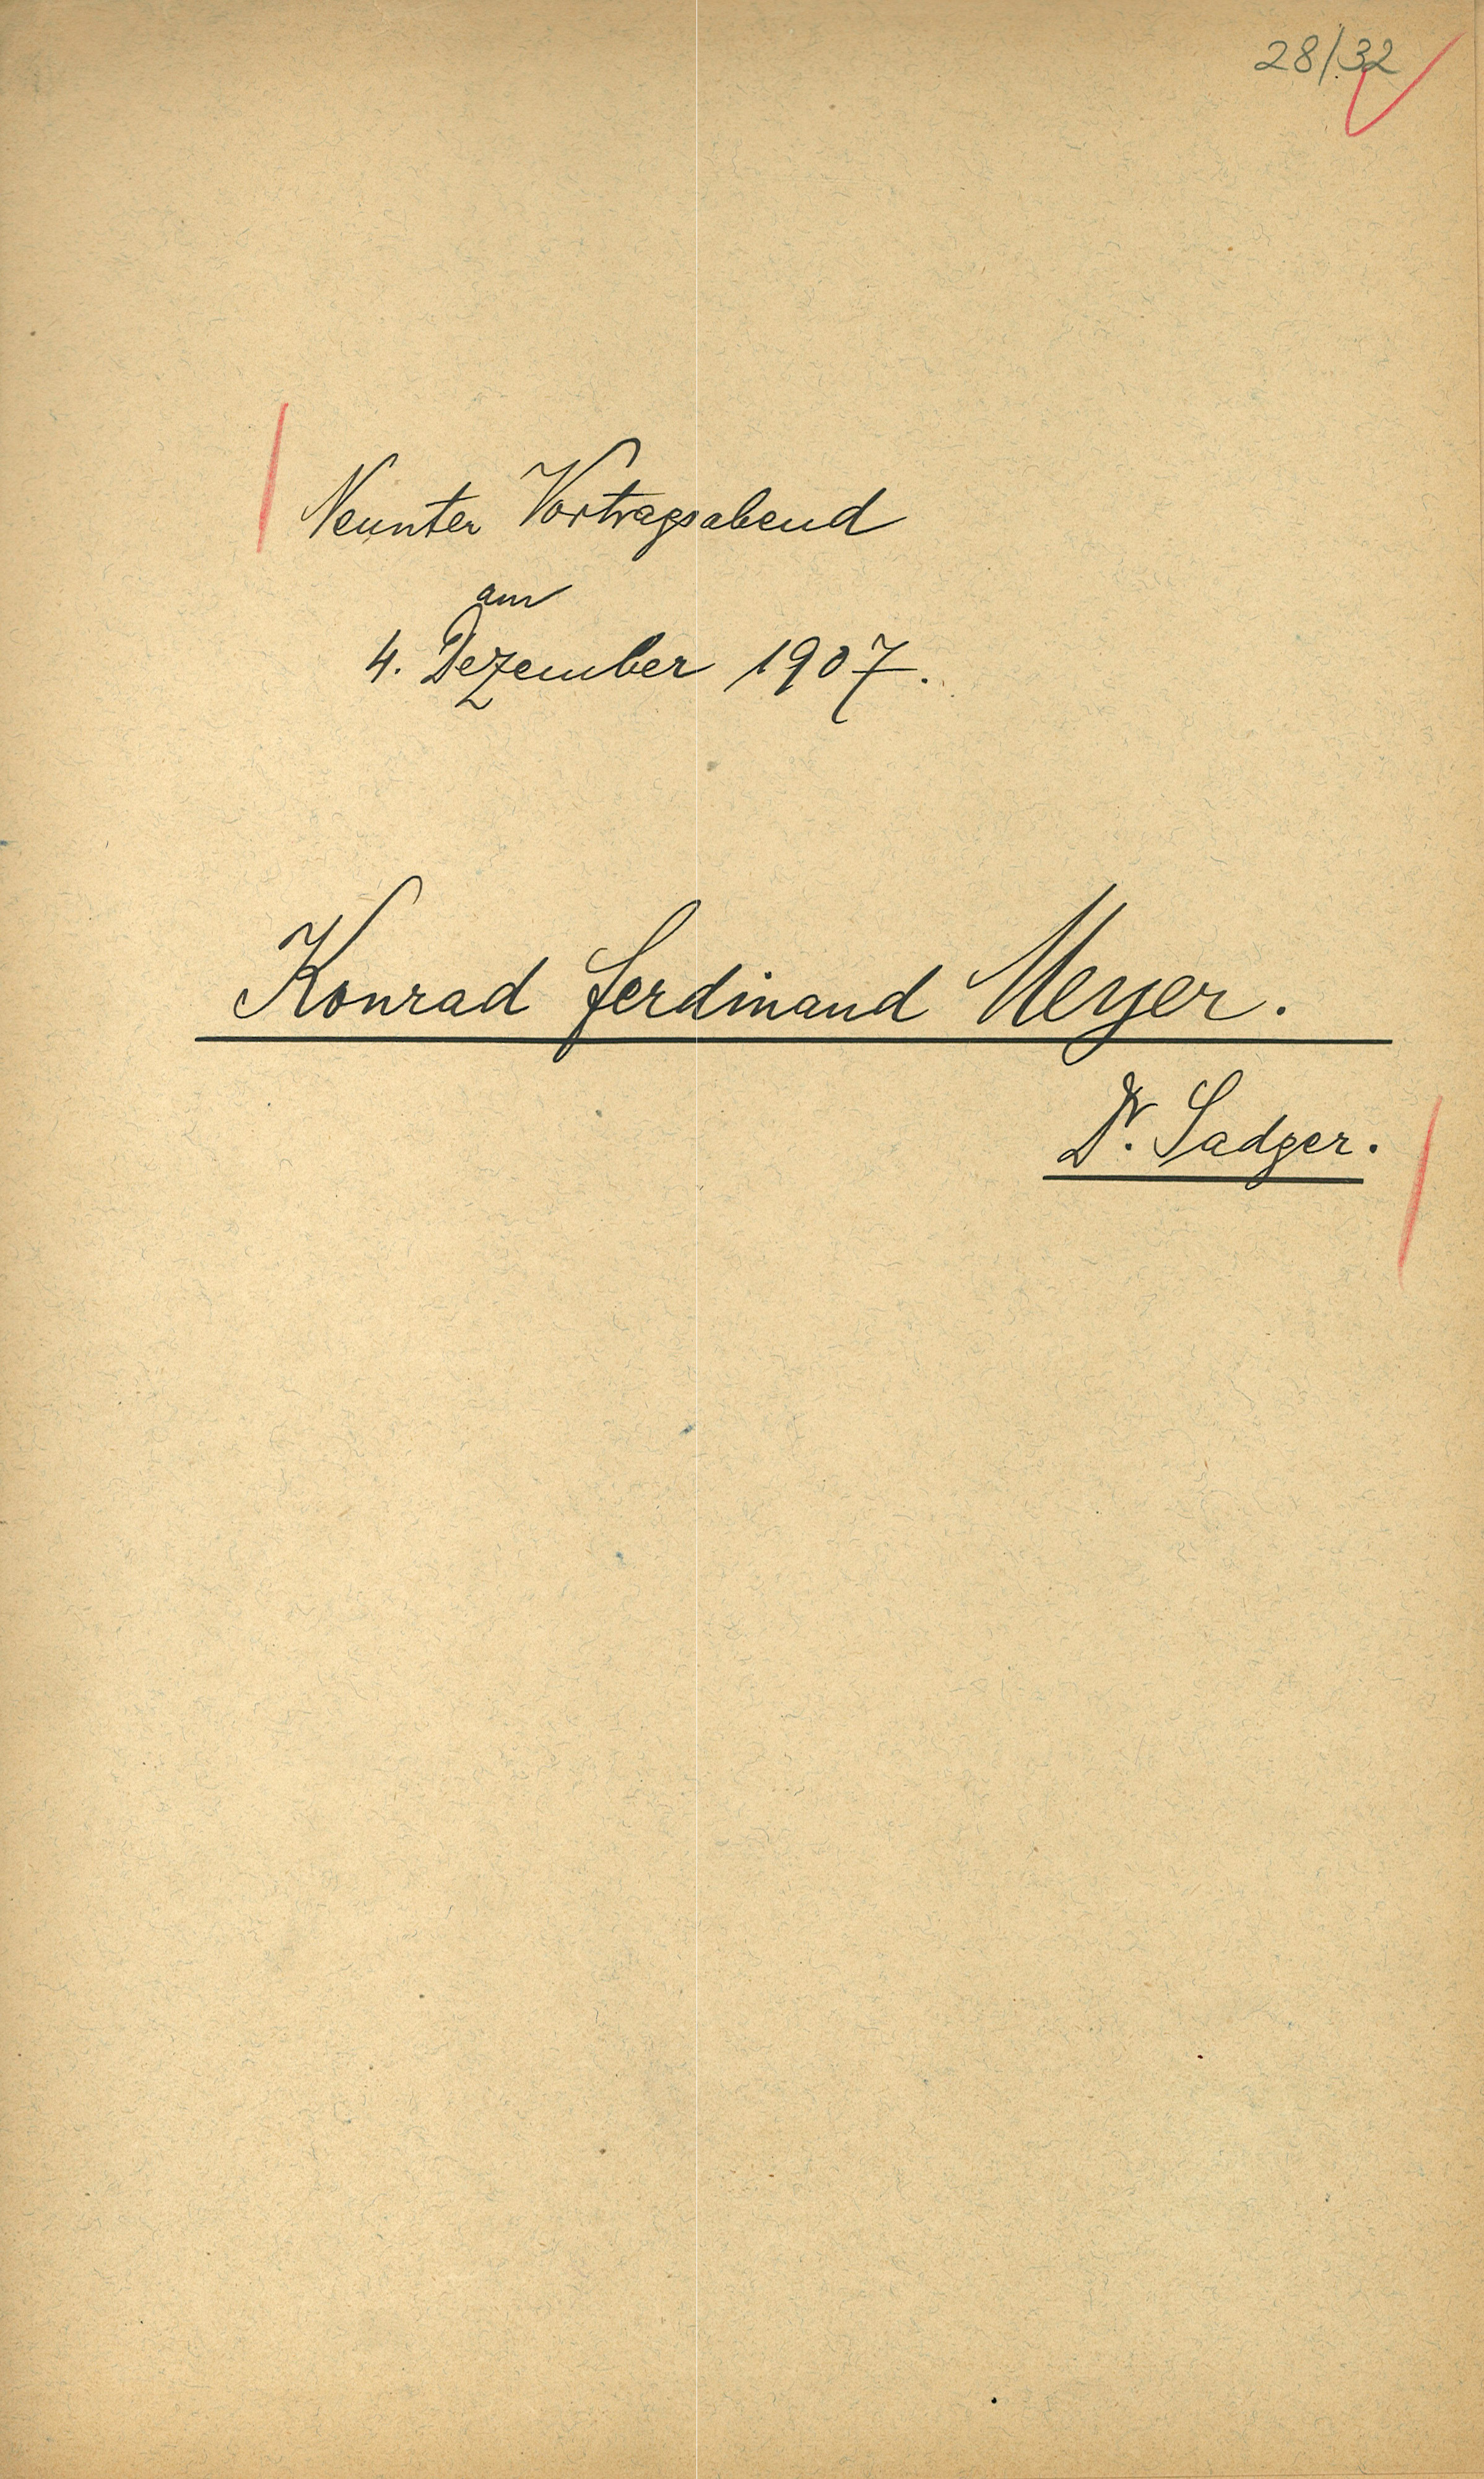 28/32
Neunter Vortragsabend
am
4. Dezember 1907.
Konrad Ferdinand Meyer.
Dr. Sadger.